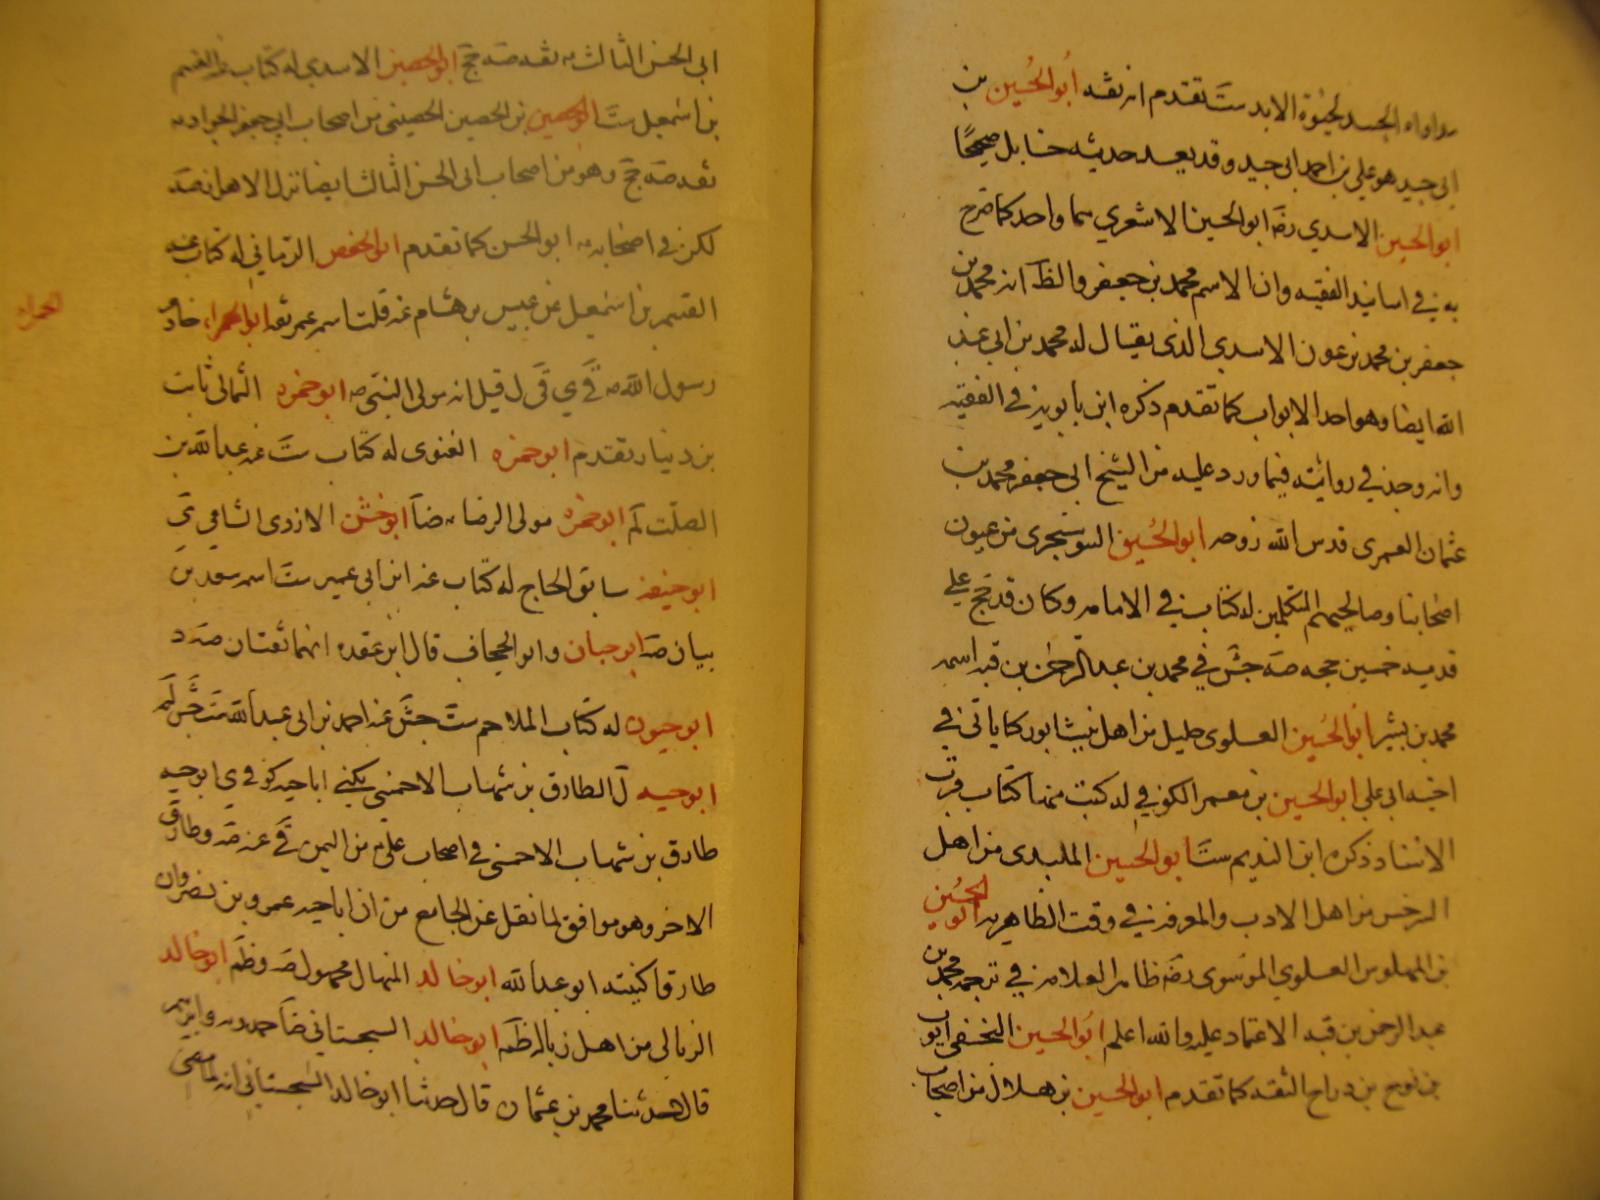 رواه الجسد لجنوة الابد ست تقدم انه ثقه ابو الحسين بن
ابى جيد هو علي بن احمد ابى جيد وقد يعد حديثه حسنا بل صحيحا
ابو الحسين الاسدي رضه ابو الحسين الاشعري سما واحد كما صرح
به في اسانيد الفقيه وان الاسم محمد بن جعفر والظ انه محمد بن
جعفر بن محمد بن عون الاسدي الذى يقال له محمد بن ابى عبد
الله ايضا وهو احد الابواب كما تقدم ذكره ابن بابويه في الفقيه
وانه وجد في روايته فيما ورد عليه من الشيخ ابى جعفر محمد بن
عثمان العمرى قدس الله روحه ابو الحسين السوسنجردى من عيون
اصحابنا وصالحيهم المتكلمين له كتاب في الامامه وكان قد حج على
قدميه خمسين حجه صه جش في محمد بن عبد الرحمن بن قبه اسمه
محمد بن بشير ابو الحسين العلوى جليل من اهل نيشابور كما ياتى في
اخيه ابى على ابو الحسين بن معمر الكوفي له كتب منها كتاب قرب
الاسناد ذكره ابن النديم ست ابو الحسين الملبدى من اهل
الرخس من اهل الادب والمعرفه في وقت الطاهريه ابو الحسين
بن المهلوس العلوي الموسوى رضه ظاهر العلامه في ترجمه محمد بن
عبد الرحمن بن قبه الاعتماد عليه والله اعلم ابو الحسين النخعى ايوب
بن نوح بن دراج الثقه كما تقدم ابو الحسين بن هلال من اصحاب
ابى الحسن الثالث ثقه صه جخ ابو الحصين الاسدي له كتاب عنه القسم
بن اسمعيل ست ابو الحصين بن الحصين الحصينى من اصحاب ابى جعفر الجواد
ثقه صه جخ وهو من اصحاب ابى الحسن الثالث ايضا نزل الاهواز صه
لكن في اصحابه ابو الحسن كما تقدم ابو الحفص الرمانى له كتاب عنه
القسم بن اسمعيل عن عبيس بن هشام عنه قلت اسمه عمر ثقه ابو الحمراء خادم
الحمراء
رسول الله قى ي ق ل قيل انه مولى النبى ابو حمزه الثمالى ثابت
بن دينار تقدم ابو حمزه الغنوى له كتاب ست عنه عبد الله بن
الصلت لم ابو حمزه مولى الرضا ضا ابو خش الازدى الشامى ي
ابو حنيفه سابق الحاج له كتاب عنه ابن ابى عمير ست اسمه سعد بن
بيان صه ابو حيان وابو الجحاف قال ابن عقده انهما ثقتان صه د
ابو حيون له كتاب الملاحم ست جش عنه احمد بن ابى عبد الله ست جش لم
ابو حيه ل الطارق بن شهاب الاحمسى يكنى ابا حيه كوفي ي ابو حيه
طارق بن شهاب الاحمسى في اصحاب على من اليمن قى عنه صه وطارق
الاخر وهو موافق لما نقل عن الجامع من ان ابا حيه عمرو بن نصر وان
طارقا كنيته ابو عبد الله ابو خالد المنهال مجهول صه وظم ابو خالد
الزبالى من اهل زباله ظم ابو خالد السجستانى ضا حمدويه وابراهيم
قالا حدثنا محمد بن عثمان قال حدثنا ابو خالد السجستانى انه لما مضى